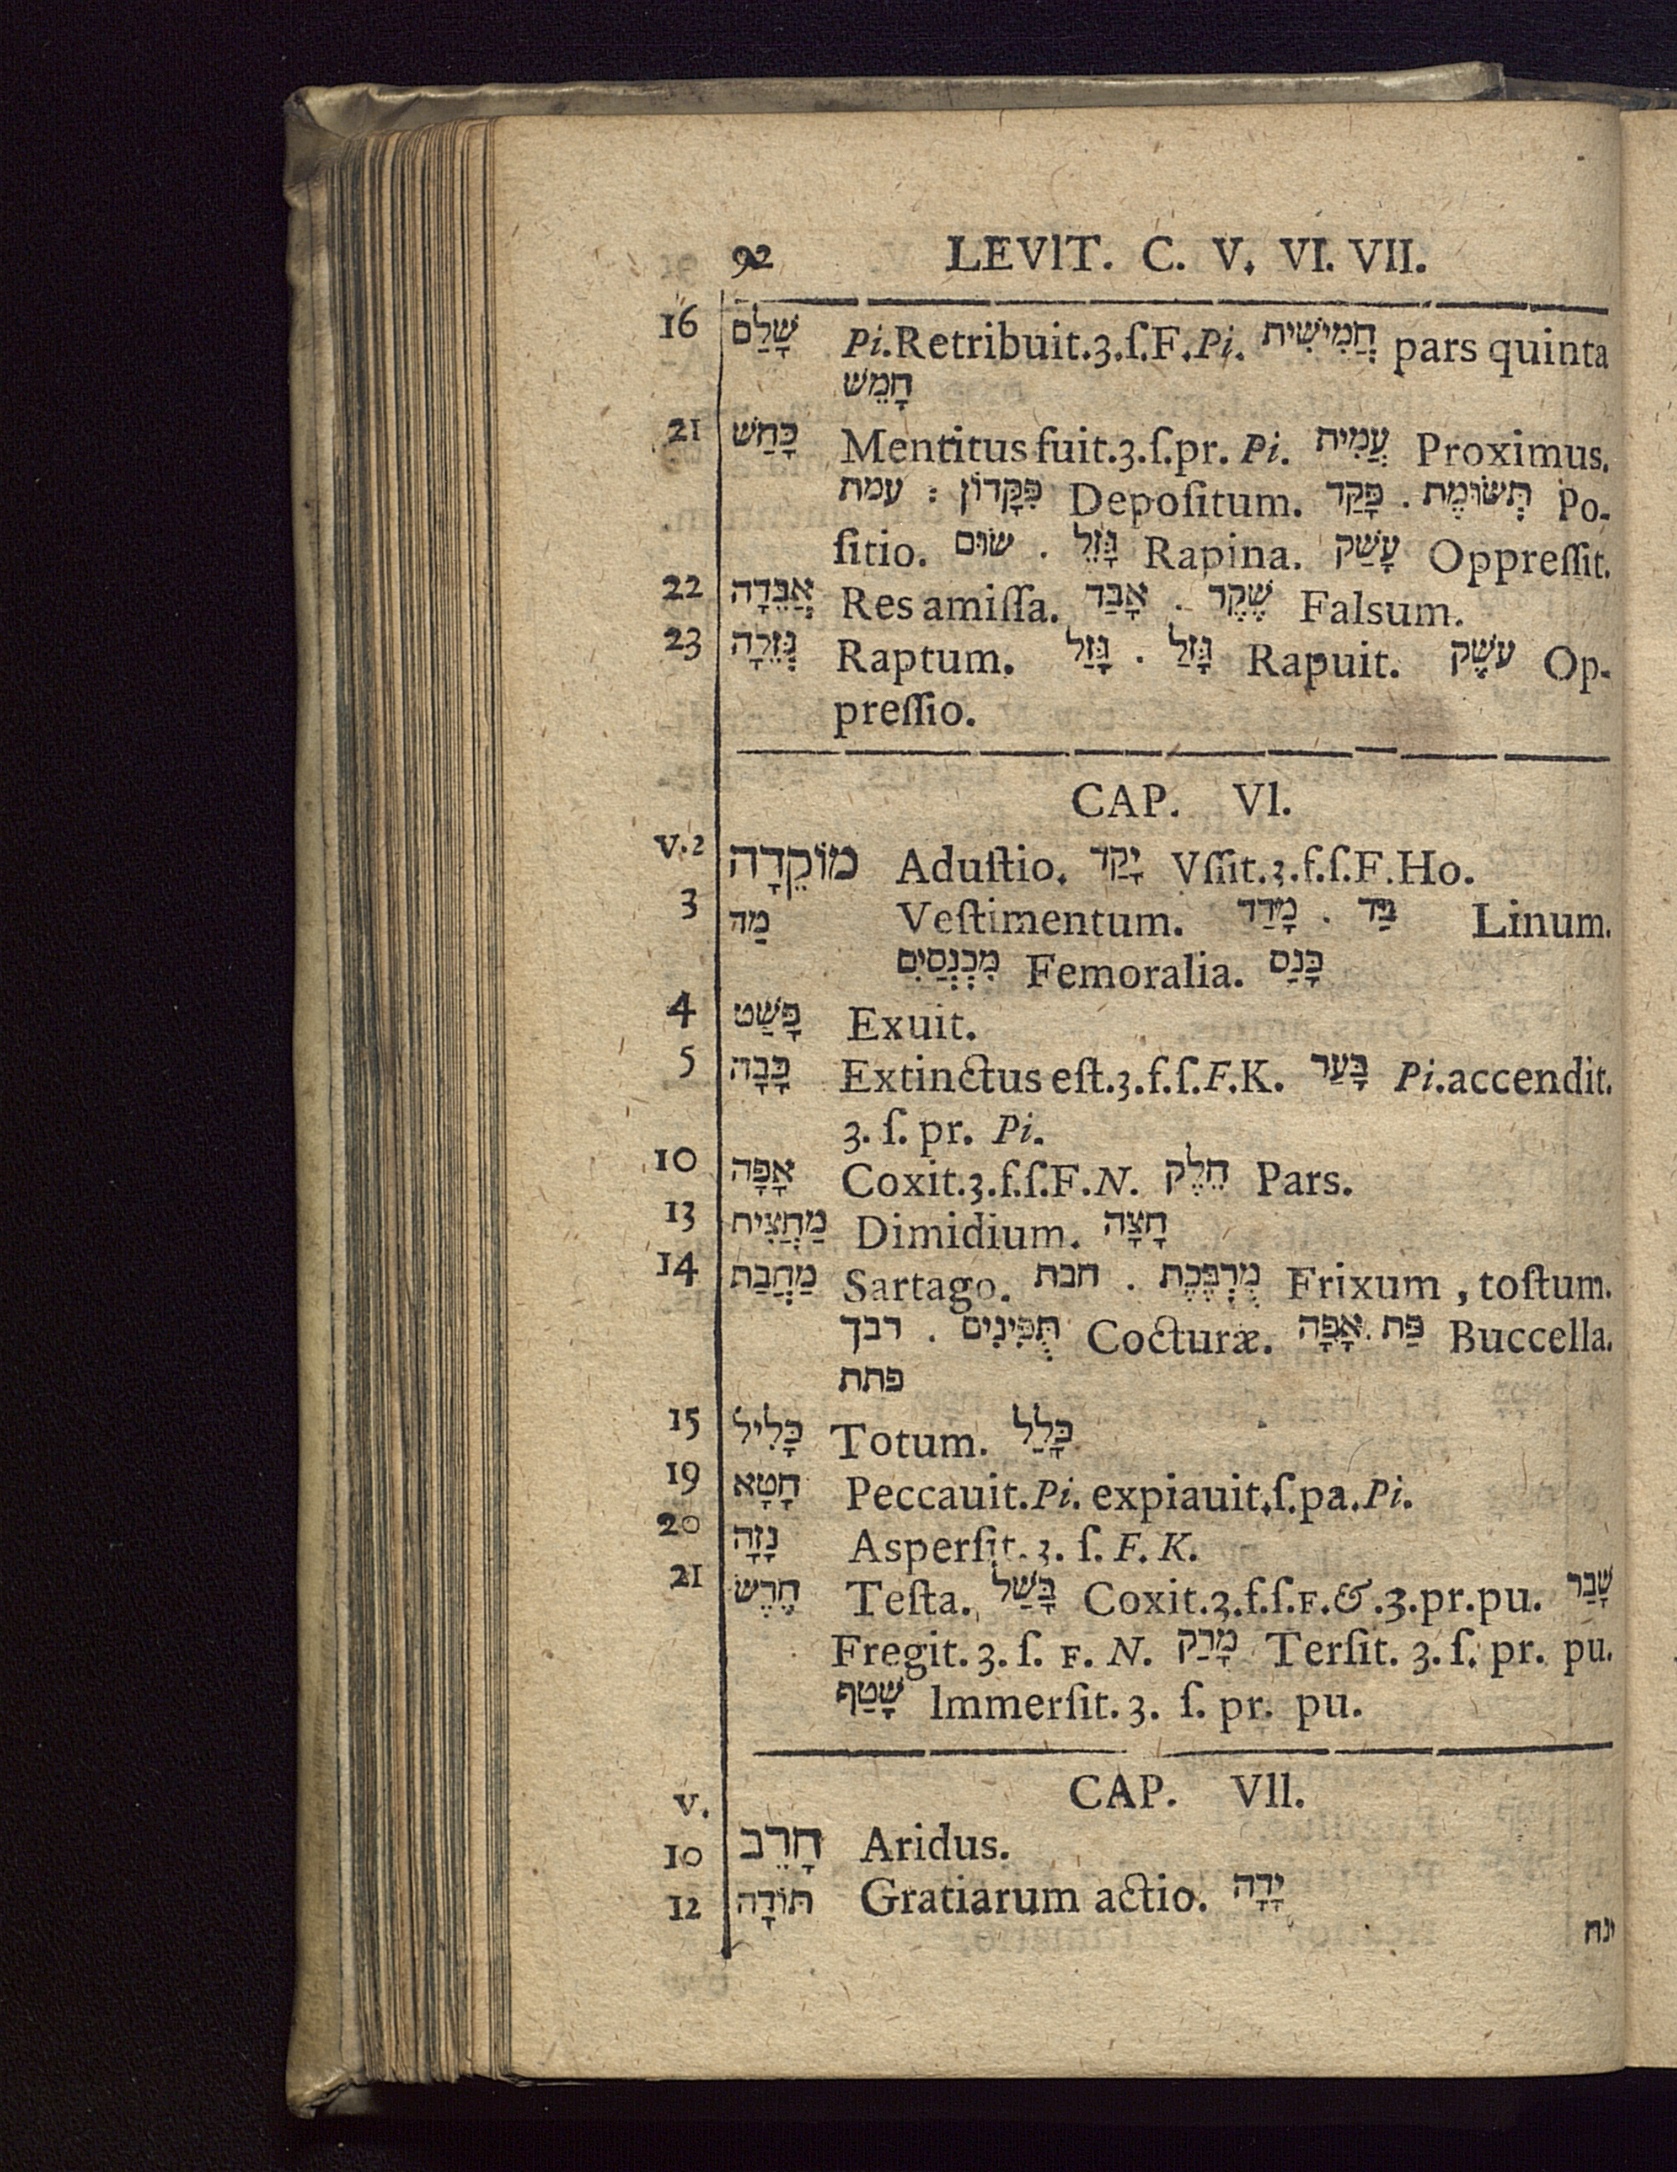 92 LEVIT. C. V. VI. VII.
16 שָׁלַם Pi.Retribuit.3.ſ.F.Pi. חֲמִישִׁית pars quinta
חָמֵשׁ
21 כָּחַשׁ Mentitus fuit.3.ſ.pr. Pi. עֲמִית Proximus.
עמת : פִּקָּדוֹן Depoſitum. פָּקַד . תְּשׂוּמֶת Po-
ſitio. שׂוּם . גָּזֵל Rapina. עָשַׁק Oppreſſit.
22 אֲבֵדָה Res amiſſa. אָבַד . שֶׁקֶר Falsum.
23 גְּזֵלָה Raptum. גָּזַל . גָּזַל Rapuit. עשֶׁק Op-
preſſio.
CAP. VI.
V.2 מוֹקֵדָה Aduſtio. יָקַד Vſſit.3.f.ſ.F.Ho.
3 מַד Veſtimentum. מָדַד . בַּד Linum.
מִכְנְסַיִם Femoralia. כָּנַס
4 פָּשַׁט Exuit.
5 כָּבָה Extinctus eſt.3.f.ſ.F.K. בָּעַר Pi.accendit.
3. ſ. pr. Pi.
10 אָפָּה Coxit.3.f.ſ.F.N. חֵלֶק Pars.
13 מַחֲצִית Dimidium. חָצָה
14 מַחֲבַת Sartago. חבת . מֻרְפֶּכֶת Frixum, toſtum.
רבך . תֻּפִּינִים Cocturæ. אָפָה . פַּת Buccella.
פתת
15 כָּלִיל Totum. כָּלַל
19 חָטָא Peccauit.Pi. expiauit.ſ.pa.Pi.
20 נָזָה Asperſit.3. ſ. F. K.
21 חֶרֶשׂ Teſta. בָּשַׁל Coxit.3.f.ſ.F.&.3.pr.pu. שָׁבַר
Fregit. 3. ſ. F. N. מָרַק Terſit. 3. ſ. pr. pu.
שָׁטַף Immerſit. 3. ſ. pr. pu.
CAP. VII.
V.
10 חָרֵב Aridus.
12 תּוֹדָה Gratiarum actio. יָדָה